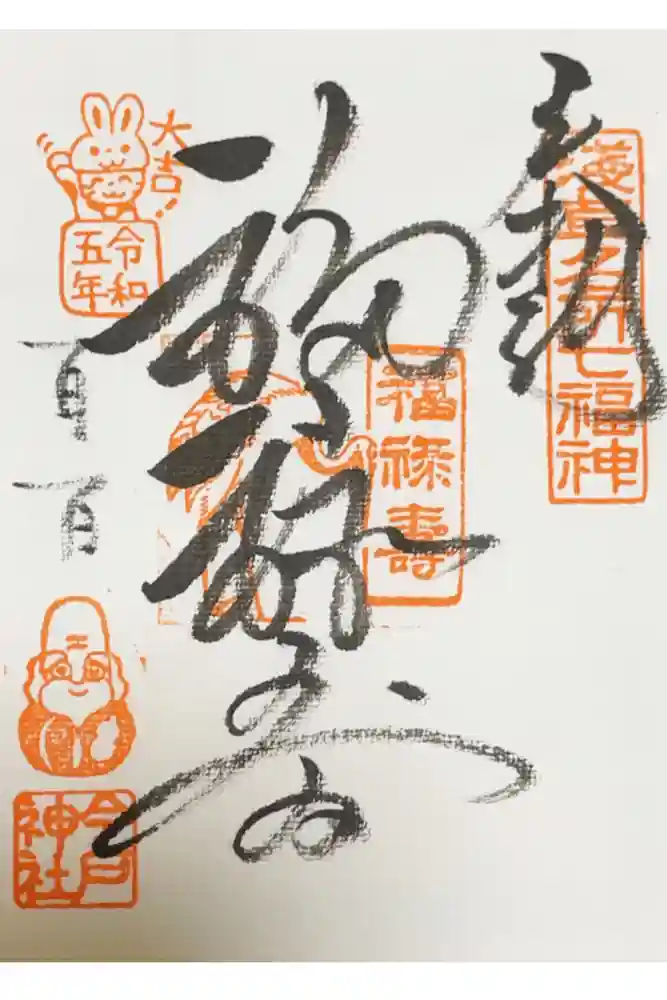 奉拝
淺草名所七福神
福禄寿
福禄壽
大吉!
令和
五年
一月一日
今戸
神社